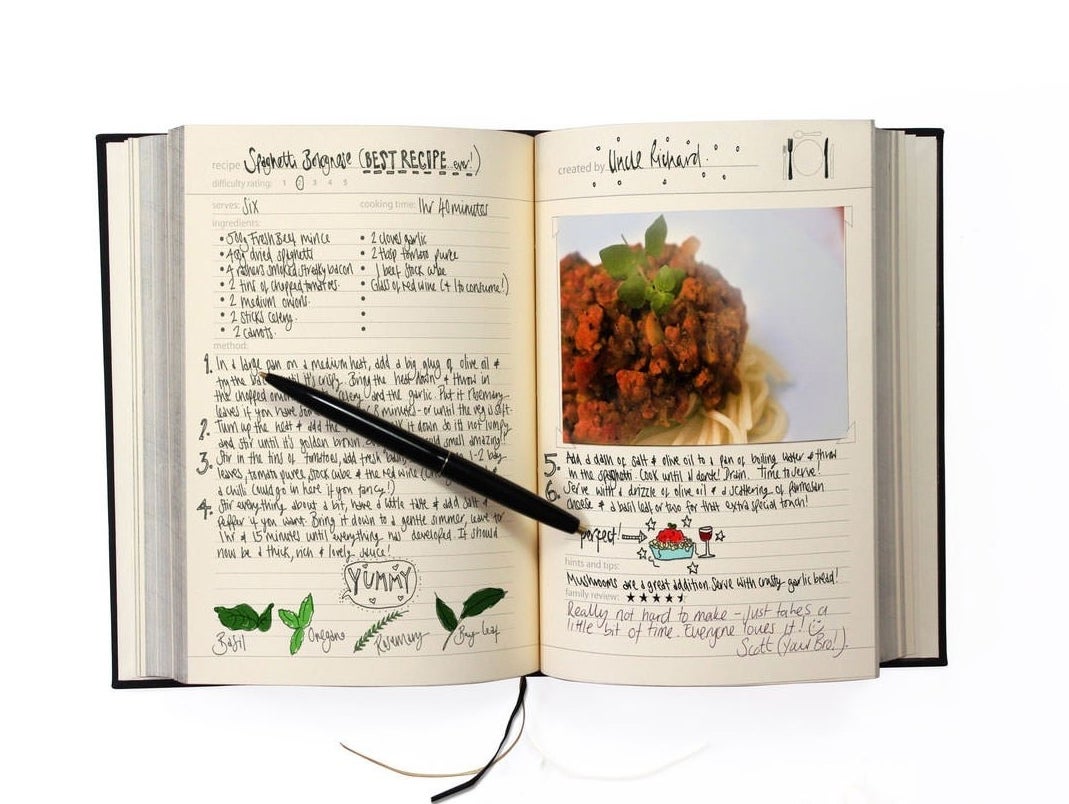 recipe Spaghetti Bolognase (BEST RECIPE ..ever!)
difficulty rating: 1 2 3 4 5
serves: Six cooking time: 1hr 40minutes
ingredients:
• 500g Fresh Beef mince • 2 cloves garlic
• 400g dried spaghetti • 2 tbsp tomato puree
• 4 rashers smoked streaky bacon • 1 beef stock cube
• 2 tins of chopped tomatoes. • Glass of red wine (+ 1 to consume!)
• 2 medium onions. •
• 2 sticks celery. •
• 2 carrots. •
method:
1. In a large pan on a medium heat, add a big glug of olive oil &
fry the until it's crispy. Bring the heat down & throw in
the chopped celery and the garlic. Put it rosemary
leaves if you have 8 minutes - or until the veg is soft.
2. Turn up the heat & add the it down so it's not lumpy
and stir until it's golden brown. smell amazing!!
3. Stir in the tins of tomatoes, add fresh 1-2 bay
leaves, tomato puree, stock cube & the red wine
a chilli could go in here if you fancy!)
4. Stir everything about a bit, have a little taste & add salt &
Pepper if you want. Bring it down to a gentle simmer, leave for
1hr & 15 minutes until everything has developed. It should
now be a thick, rich & lovely sauce!
YUMMY
Basil Oregano Rosemary Bay-Leaf
created by Uncle Richard.
5. Add a dash of salt & olive oil to a pan of boiling water & throw
in the spaghetti. Cook until al dente! Drain. Time to serve!
6. Serve with a drizzle of olive oil & a scattering of parmesan
cheese & a basil leaf or two for that extra special touch!
perfect!
hints and tips:
Mushrooms are a great addition. Serve with crusty garlic bread!
family review: ★★★★★
Really not hard to make - just takes a
little bit of time. Everyone loves it!
Scott (Your Bro!).